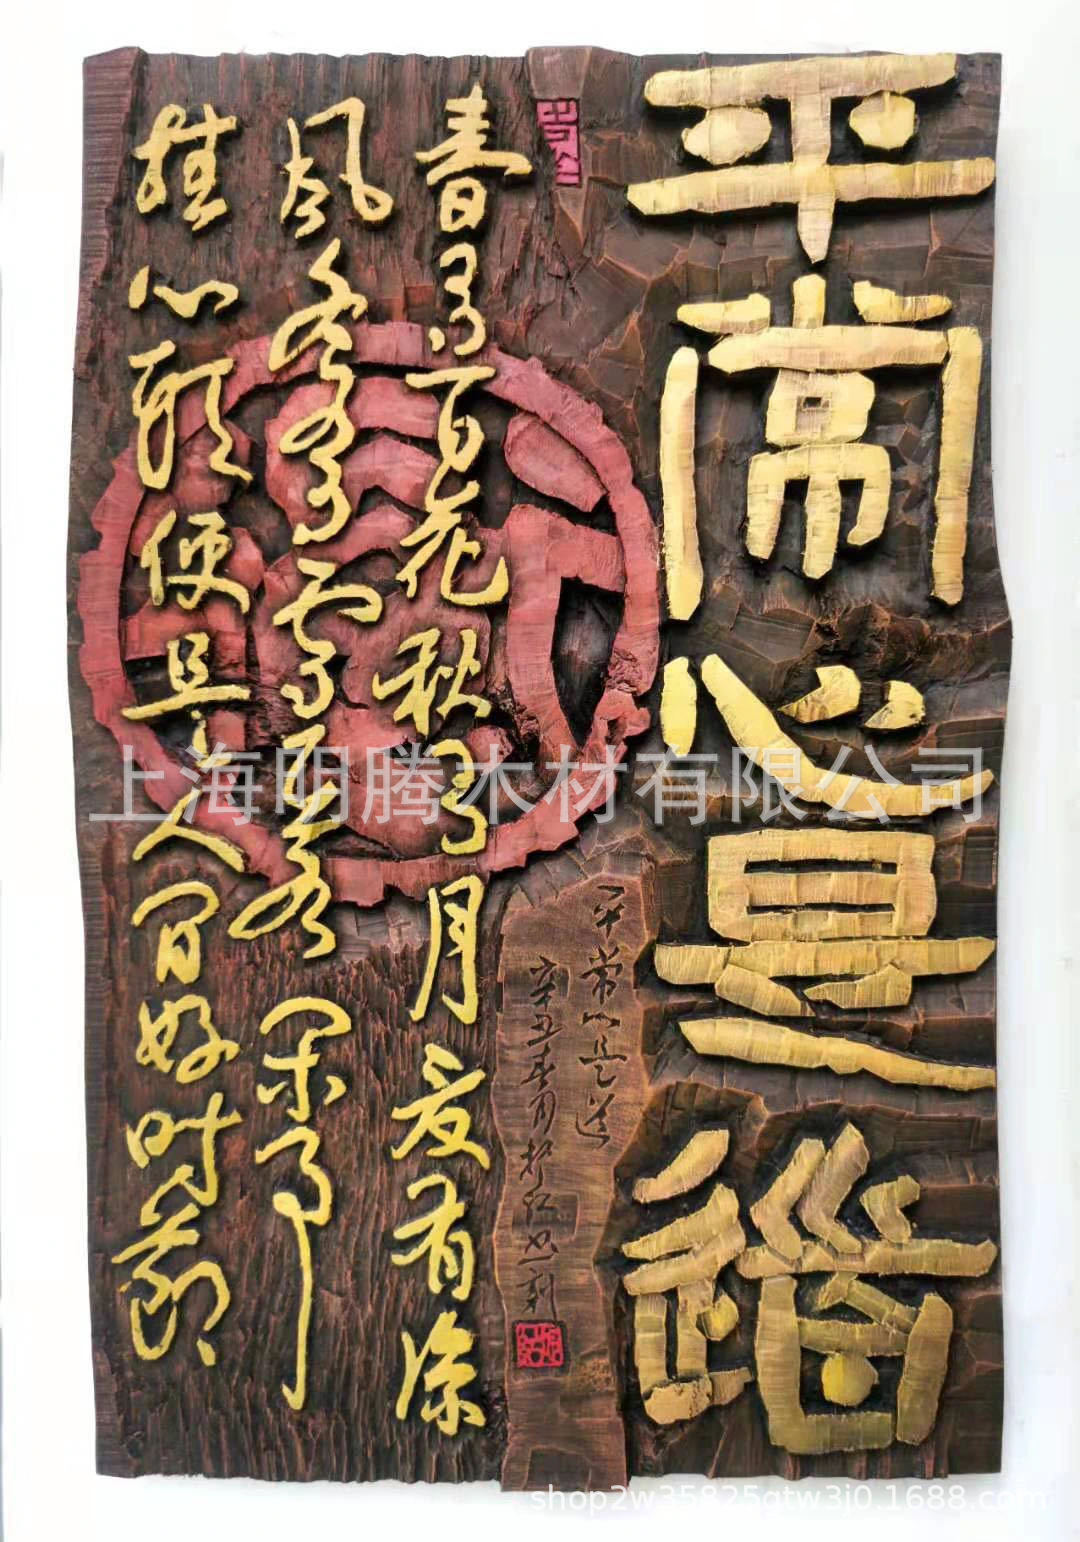 平常心是道
春有百花秋有月夏有凉
风冬有雪若无闲事
挂心头便是人间好时节
平常心是道
辛丑春月於江
上海明腾木材有限公司
shop2w35825gtw3j0.1688.com